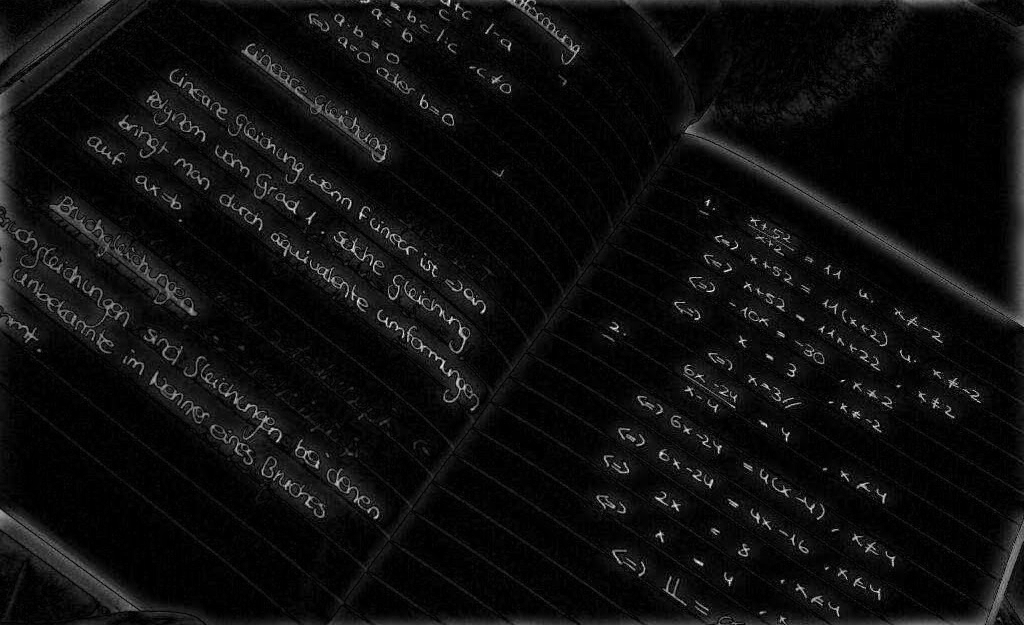 a = bc |·c ·c≠0
a·b = 0
(=) a=0 oder b=0
Lineare Gleichung
Lineare Gleichung wenn f linear ist
Polynom vom Grad 1. Solche Gleichung
bringt man durch äquivalente Umformungen
auf ax=b.
Bruchgleichungen
Bruchgleichungen sind Gleichungen bei denen
Unbekannte im Nenner eines Bruches
1. x+52 / x+2 = 11 u. x≠-2
(=) x+52 = 11(x+2) u. x≠-2
(=) x+52 = 11x+22 · x≠2
(=) -10x = -30 · x≠2
(=) x = 3 · x≠-2
(=) x=3//
2. 6x-24 / x-4 = 4 · x≠4
(=) 6x-24 = 4(x-4) · x≠4
(=) 6x-24 = 4x-16 · x≠4
(=) 2x = 8 · x≠4
(=) x = 4
(=) 𝕃 =